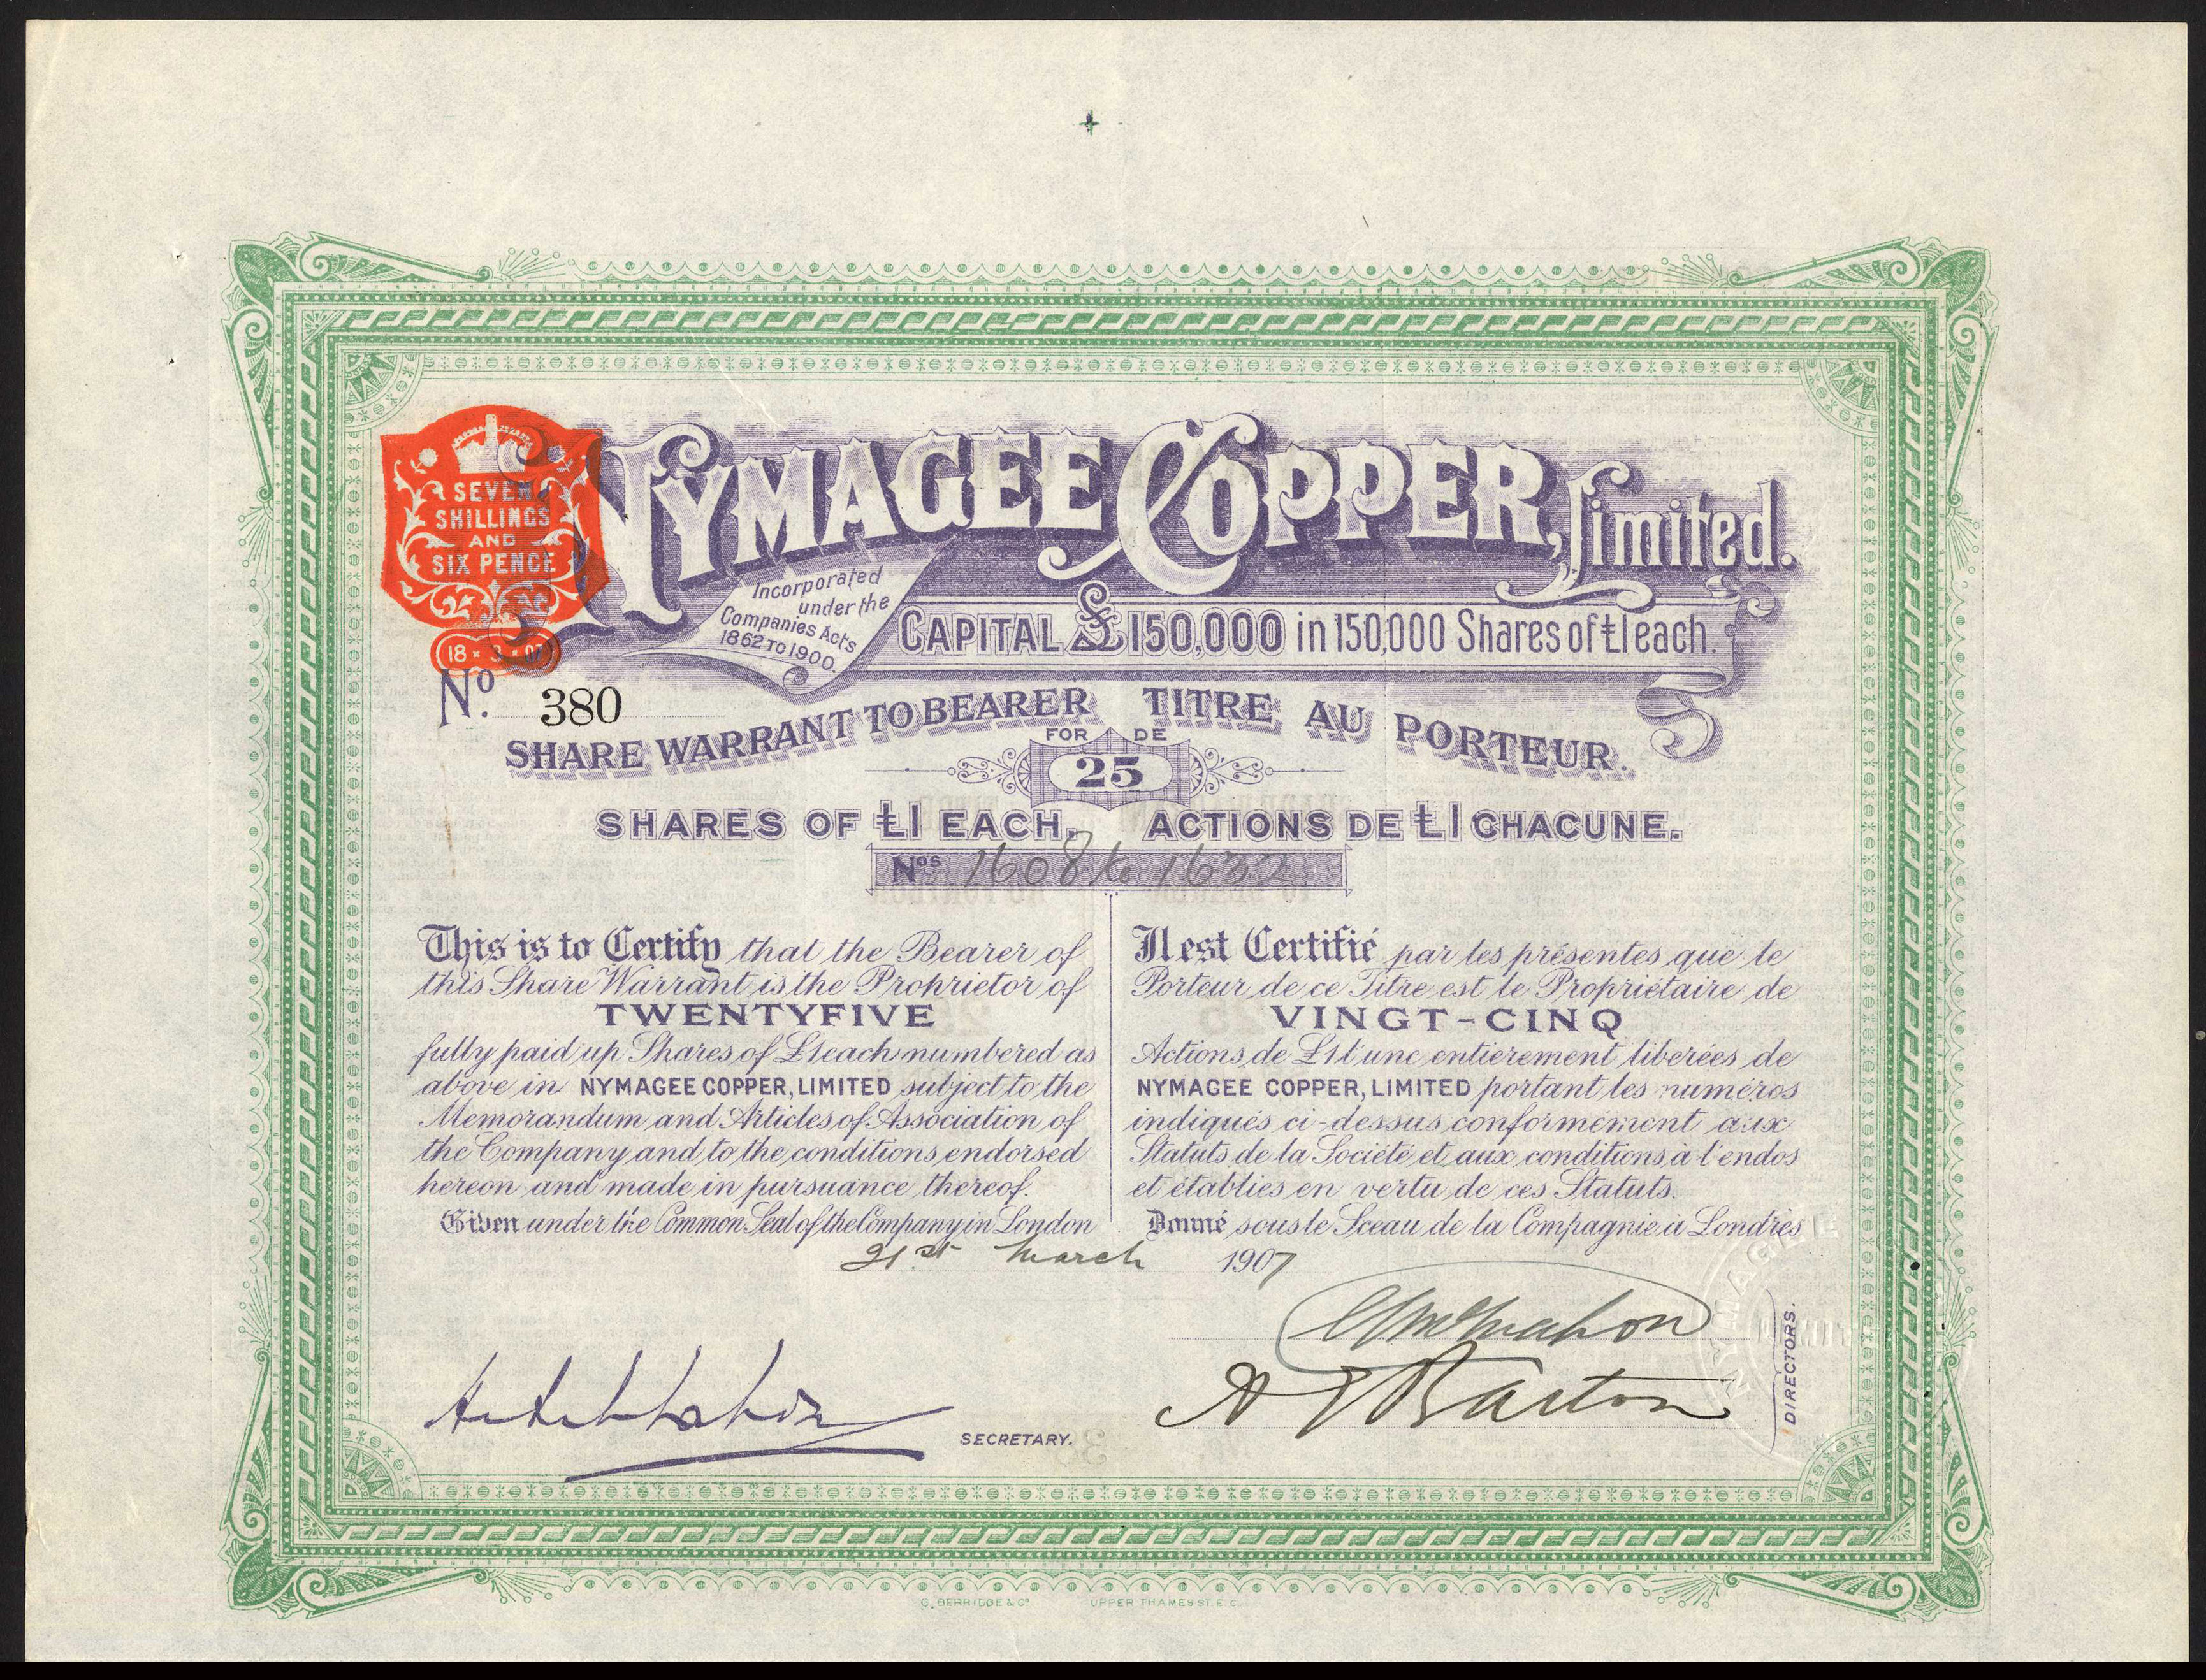 NYMAGEE COPPER, Limited.
SEVEN
SHILLINGS
AND
SIX PENCE
18 × 3 × 07
Incorporated
under the
Companies Acts
1862 TO 1900.
CAPITAL £150,000 in 150,000 Shares of £1 each.
No. 380
SHARE WARRANT TO BEARER TITRE AU PORTEUR.
FOR DE
25
SHARES OF £1 EACH, ACTIONS DE £1 CHACUNE.
Nos 1608 to 1632
This is to Certify that the Bearer of
this Share Warrant is the Proprietor of
TWENTYFIVE
fully paid up Shares of £1 each numbered as
above in NYMAGEE COPPER, LIMITED subject to the
Memorandum and Articles of Association of
the Company and to the conditions endorsed
hereon and made in pursuance thereof.
Given under the Common Seal of the Company in London
Il est Certifié par les présentes que le
Porteur de ce Titre est le Propriétaire de
VINGT-CINQ
Actions de £1 l'une entièrement liberées de
NYMAGEE COPPER, LIMITED portant les numéros
indiqués ci-dessus conformément aux
Statuts de la Société et aux conditions à l'endos
et établies en vertu de ces Statuts.
Donné sous le Sceau de la Compagnie à Londres
21st March 1907
SECRETARY.
DIRECTORS.
NYMAGEE
C. BERRIDGE & Co UPPER THAMES ST. E.C.